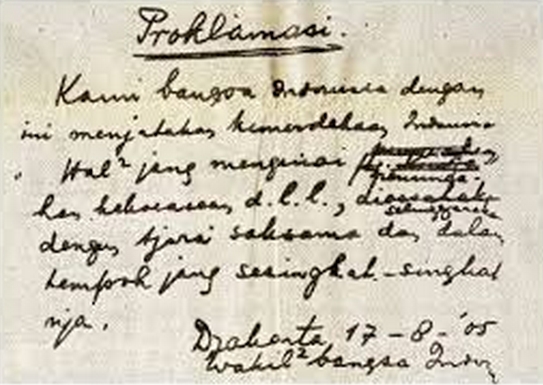 Proklamasi.
Kami bangsa Indonesia dengan
ini menjatakan kemerdekaan Indonesia
Hal² jang mengenai
pemindahan
kekoeasaan, d.l.l.,
diselenggarakan
dengan tjara saksama dan dalam
tempoh jang sesingkat-singkat
nja.
Djakarta 17-8-'05
Wakil² bangsa Indon